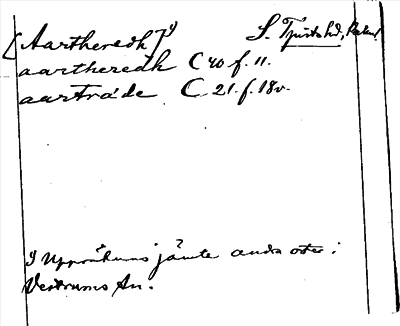 [Aartheredh]¹⁾ S. Tjusts hd,
aartheredh C 40 f. 11.
aartrade C 21. f. 18v.
1) Uppräknas jämte andra orter i
Vestrums sn.